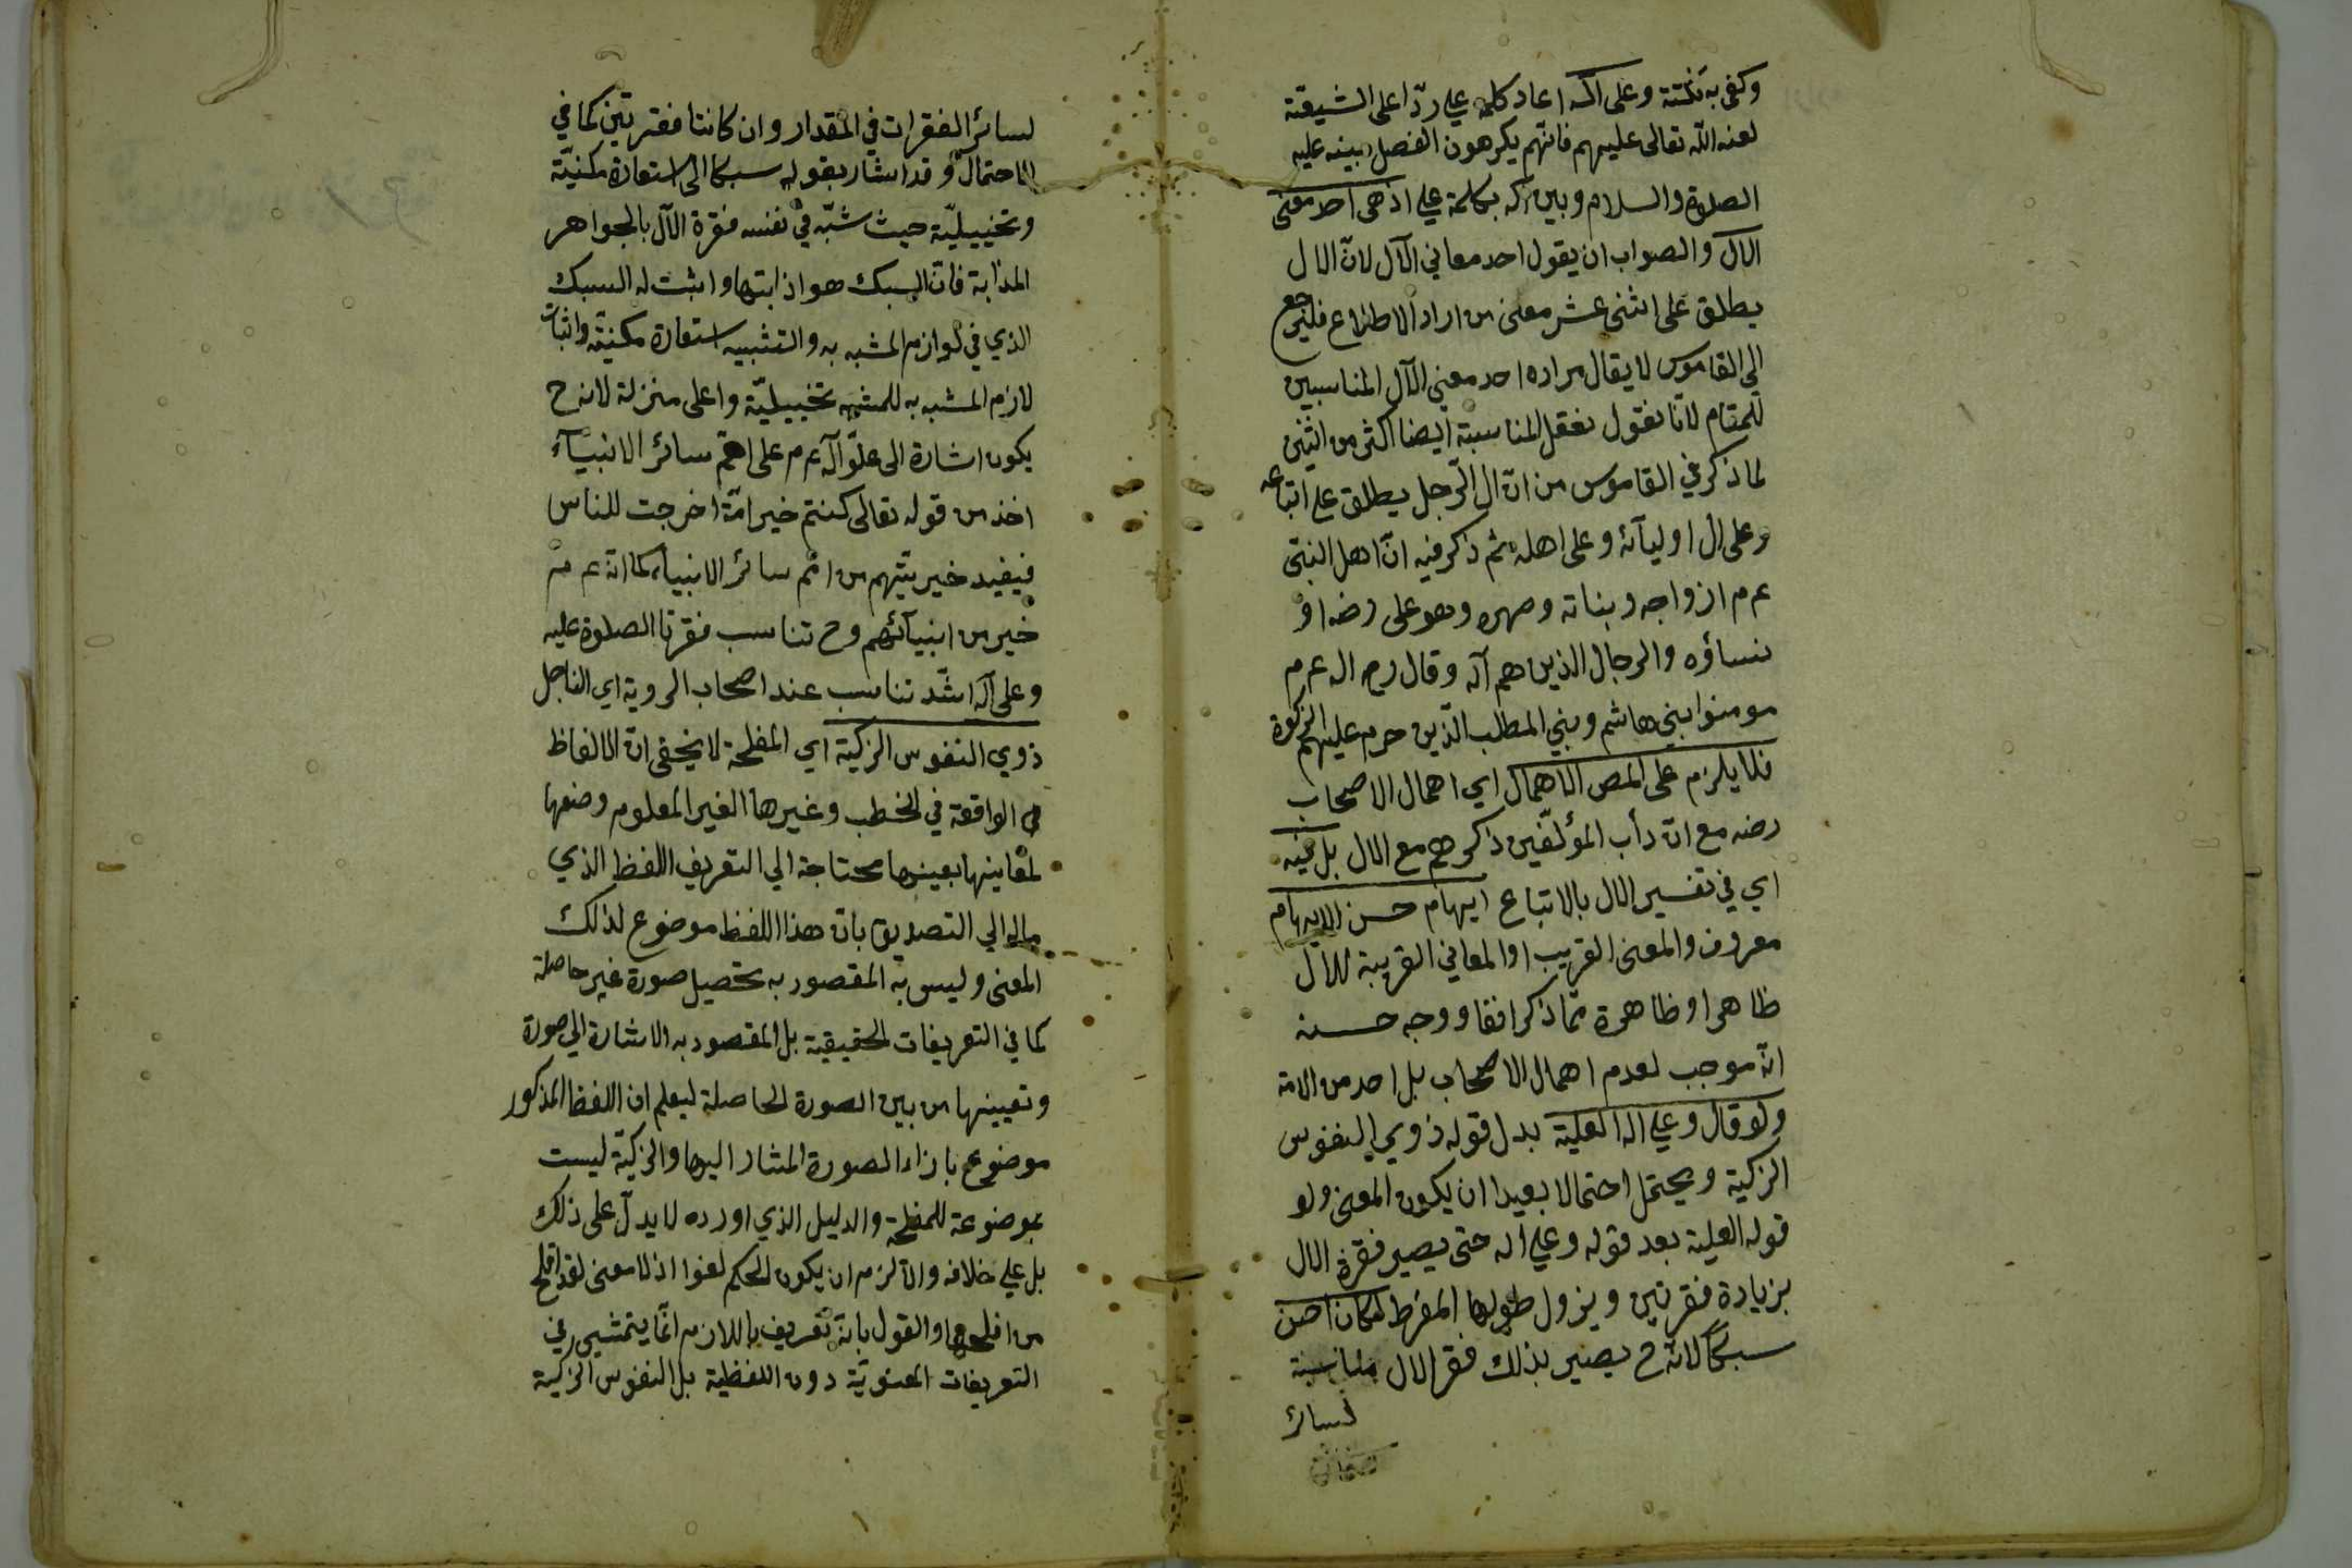 وكفى به نكتة وعلى آله اعاد كلمة على ردّا على الشيعة
لعنه الله تعالى عليهم فانّهم يكرهون الفصل بينه عليه
الصلوة والسلام وبين آله بكلمة على اذ هى احد معنى
الآل والصواب ان يقول احد معاني الآل لانّ الال
يطلق على اثنى عشر معنى من اراد الاطلاع فليرجع
الى القاموس لا يقال مراده احد معنى الآل المناسبين
للمقام لانّا نقول نعقل المناسبة ايضا اكثر من اثنين
لما ذكر في القاموس من انّ ال الرّجل يطلق على اتباعه
وعلى ال اوليآئه وعلى اهله ثم ذكر فيه انّ اهل النبىّ
عم م ازواجه وبناته وصهره وهو على رضه او
نساؤه والرجال الذين هم آله وقال رح اله عم م
مومنوا بني هاشم وبني المطلب الذين حرم عليهم الزكوة
فلا يلزم على المص الاهمال اي اهمال الاصحاب
رضه مع انّ دأب المؤلّفين ذكرهم مع الال بل فيه
اي في تفسير الال بالاتباع ايهام حسن الايهام
معروف والمعنى القريب او المعاني القريبة للال
ظاهر او ظاهرة ممّا ذكر انفا ووجه حسنه
انّه موجب لعدم اهمال الاصحاب بل احد من الامة
ولو قال وعلى اله العلية بدل قوله ذوي النفوس
الزكية ويحتمل احتمالا بعيدا ان يكون المعنى ولو
قوله العلية بعد قوله وعلى اله حتى يصير فقرة الال
بزيادة فقرتين ويزول طولها المفرط لكان احسن
سبكا لانه ح يصير بذلك فقر الال مناسبة
لسائر
لسائر الفقرات في المقدار وان كانتا فقرتين كما في
الاحتمال وقد اشار بقوله سبكا الى استعارة مكنيّة
وتخييليّة حيث شبّه في نفسه فقرة الآل بالجواهر
المذابة فانّ السبك هو اذابتها واثبت له السبك
الذي في لوازم المشبه به والتشبيه استعارة مكنيّة واثبات
لازم المشبه به للمشبه تخييليّة واعلى منزلة لانه ح
يكون اشارة الى علوّ آله عم م على امم سائر الانبيآء
اخذ من قوله تعالى كنتم خير امّة اخرجت للناس
فيفيد خيريتّهم من امم سائر الانبياء كما انّه عم م
خير من انبيآئهم وح تناسب فقرتا الصلوة عليه
وعلى آله اشدّ تناسب عند اصحاب الروية اي التأمل
ذوي النفوس الزكية اي المفلحة لا يخفى انّ الالفاظ
الواقعة في الخطب وغيرها الغير المعلوم وضعها
لمعاينها بعينها محتاجة الي التعريف اللفظ الذي
ماله الي التصديق بانّ هذا اللفظ موضوع لذلك
المعنى وليس به المقصود به تحصيل صورة غير حاصلة
كما في التعريفات الحقيقية بل المقصود به الاشارة الي صورة
وتعيينها من بين الصورة الحاصلة ليعلم ان اللفظ المذكور
موضوع بازاء الصورة المشار اليها والزكيّة ليست
بموضوعة للمفلحة والدليل الذي اورده لا يدلّ على ذلك
بل على خلافه والّا لزم ان يكون الحكم لغوا اذ لا معنى لقد افلح
من افلحها والقول بانّه تعريف باللازم انّما يتمشى في
التعريفات المعنويّة دون اللفظية بل النفوس الزكية